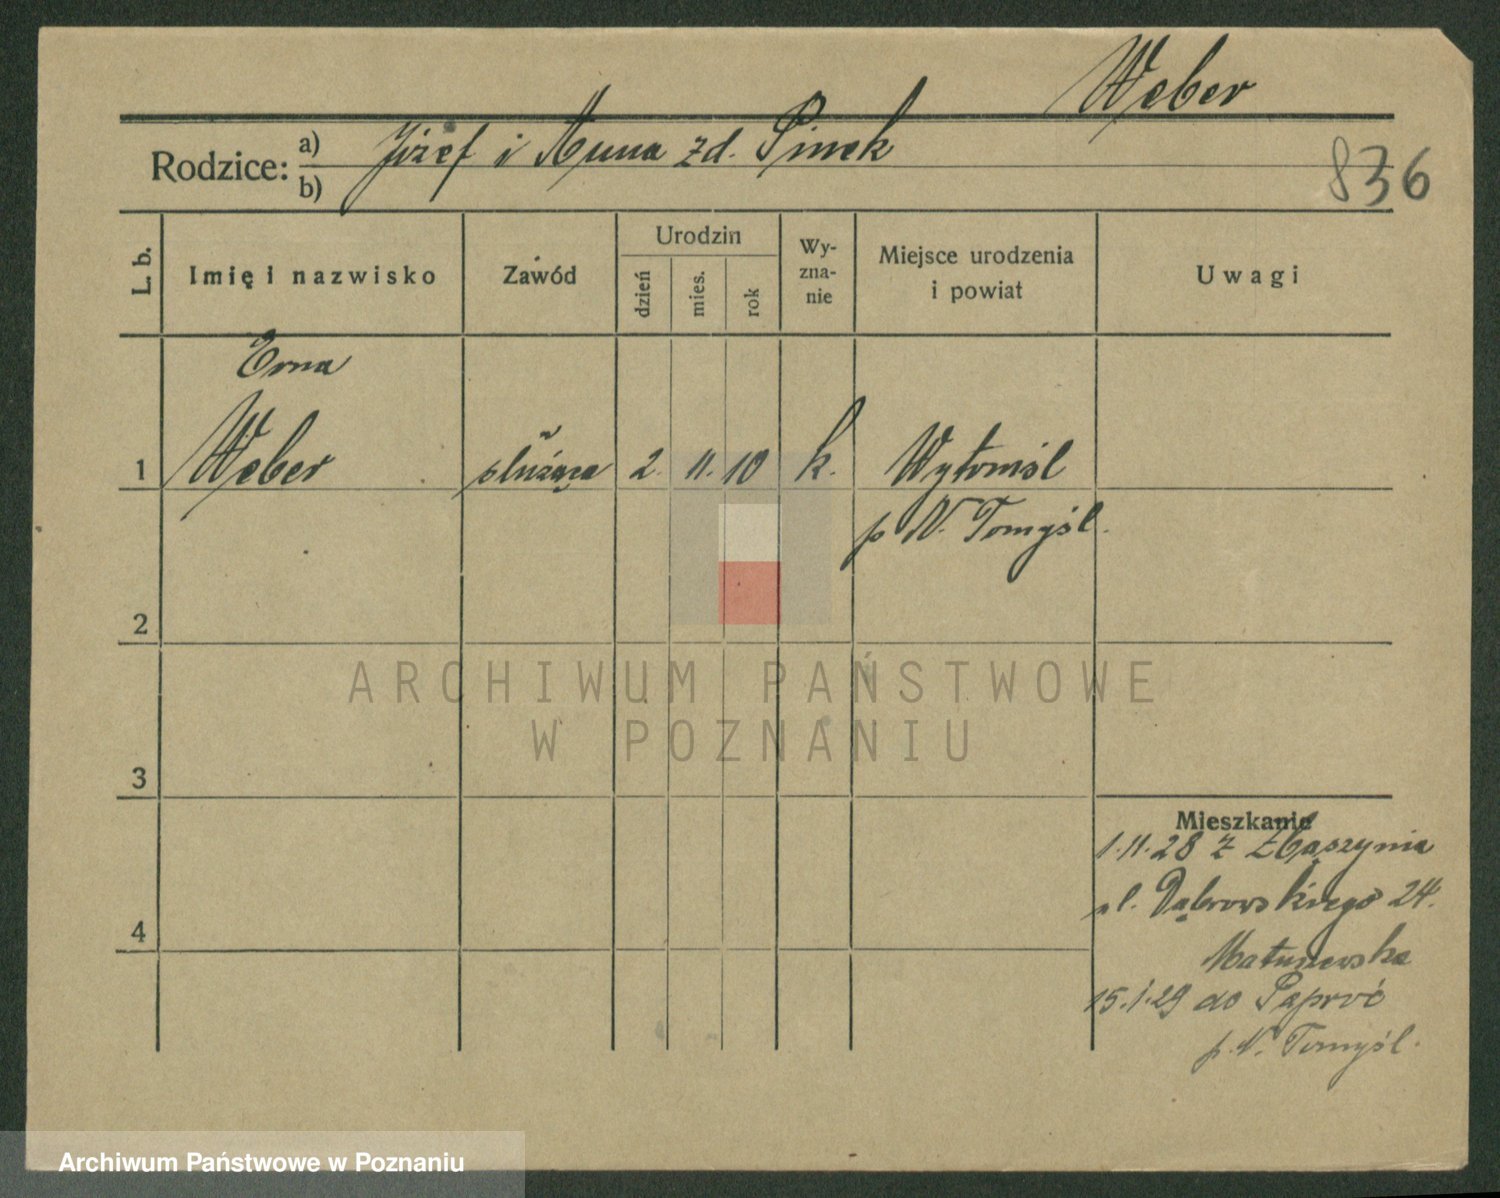 Weber
Rodzice: a) b) Józef i Anna zd. Pinek
836
L. b.
Imię i nazwisko
Zawód
Urodzin
dzień
mies.
rok
Wy-
zna-
nie
Miejsce urodzenia
i powiat
Uwagi
Erna
1 Weber służąca 2. 11. 10 k. Wytomśl
p N. Tomyśl.
2
3
4
Mieszkanie
1.11.28 z Zbąszynia
ul. Dąbrowskiego 24.
Matuszewska
15.1.29 do Paproć
p. N. Tomyśl.
ARCHIWUM PAŃSTWOWE
W POZNANIU
Archiwum Państwowe w Poznaniu